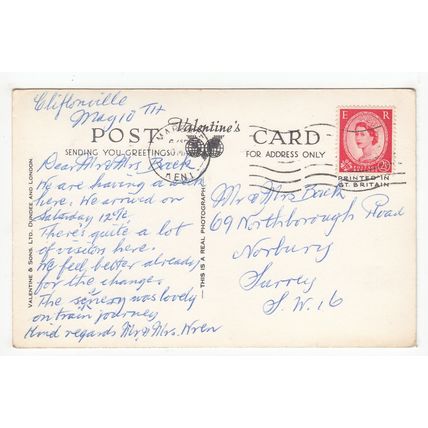 Cliftonville
May 10 TH
POST Valentine's CARD
SENDING YOU GREETINGS
FOR ADDRESS ONLY
MARGATE
KENT
E R
2½D
PRINTED IN
GT. BRITAIN
Dear Mr & Mrs Bock
We are having a week
here. We arrived on
Saturday
There's quite a lot
of visiors here.
We feel better already
for the change.
The senesy was lovely
on train journey
Kind regards Mr & Mrs. Wren
VALENTINE & SONS. LTD. DUNDEE AND LONDON
— THIS IS A REAL PHOTOGRAPH —
Mr & Mrs Bock
69 Northborough Road
Norbury
Surrey
S.W. 16